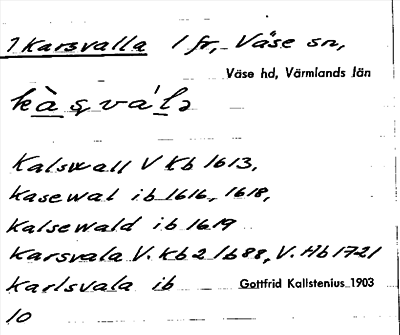 1 Karsvalla 1 fr, Väse sn,
Väse hd, Värmlands län
kàșváḷə
Kalswall V Kb 1613,
Kasewal ib 1616, 1618,
Kalsewald ib 1619
Karsvala V. Kb 2 1688, V. Hb 1721
Karlsvala ib Gottfrid Kallstenius 1903
10